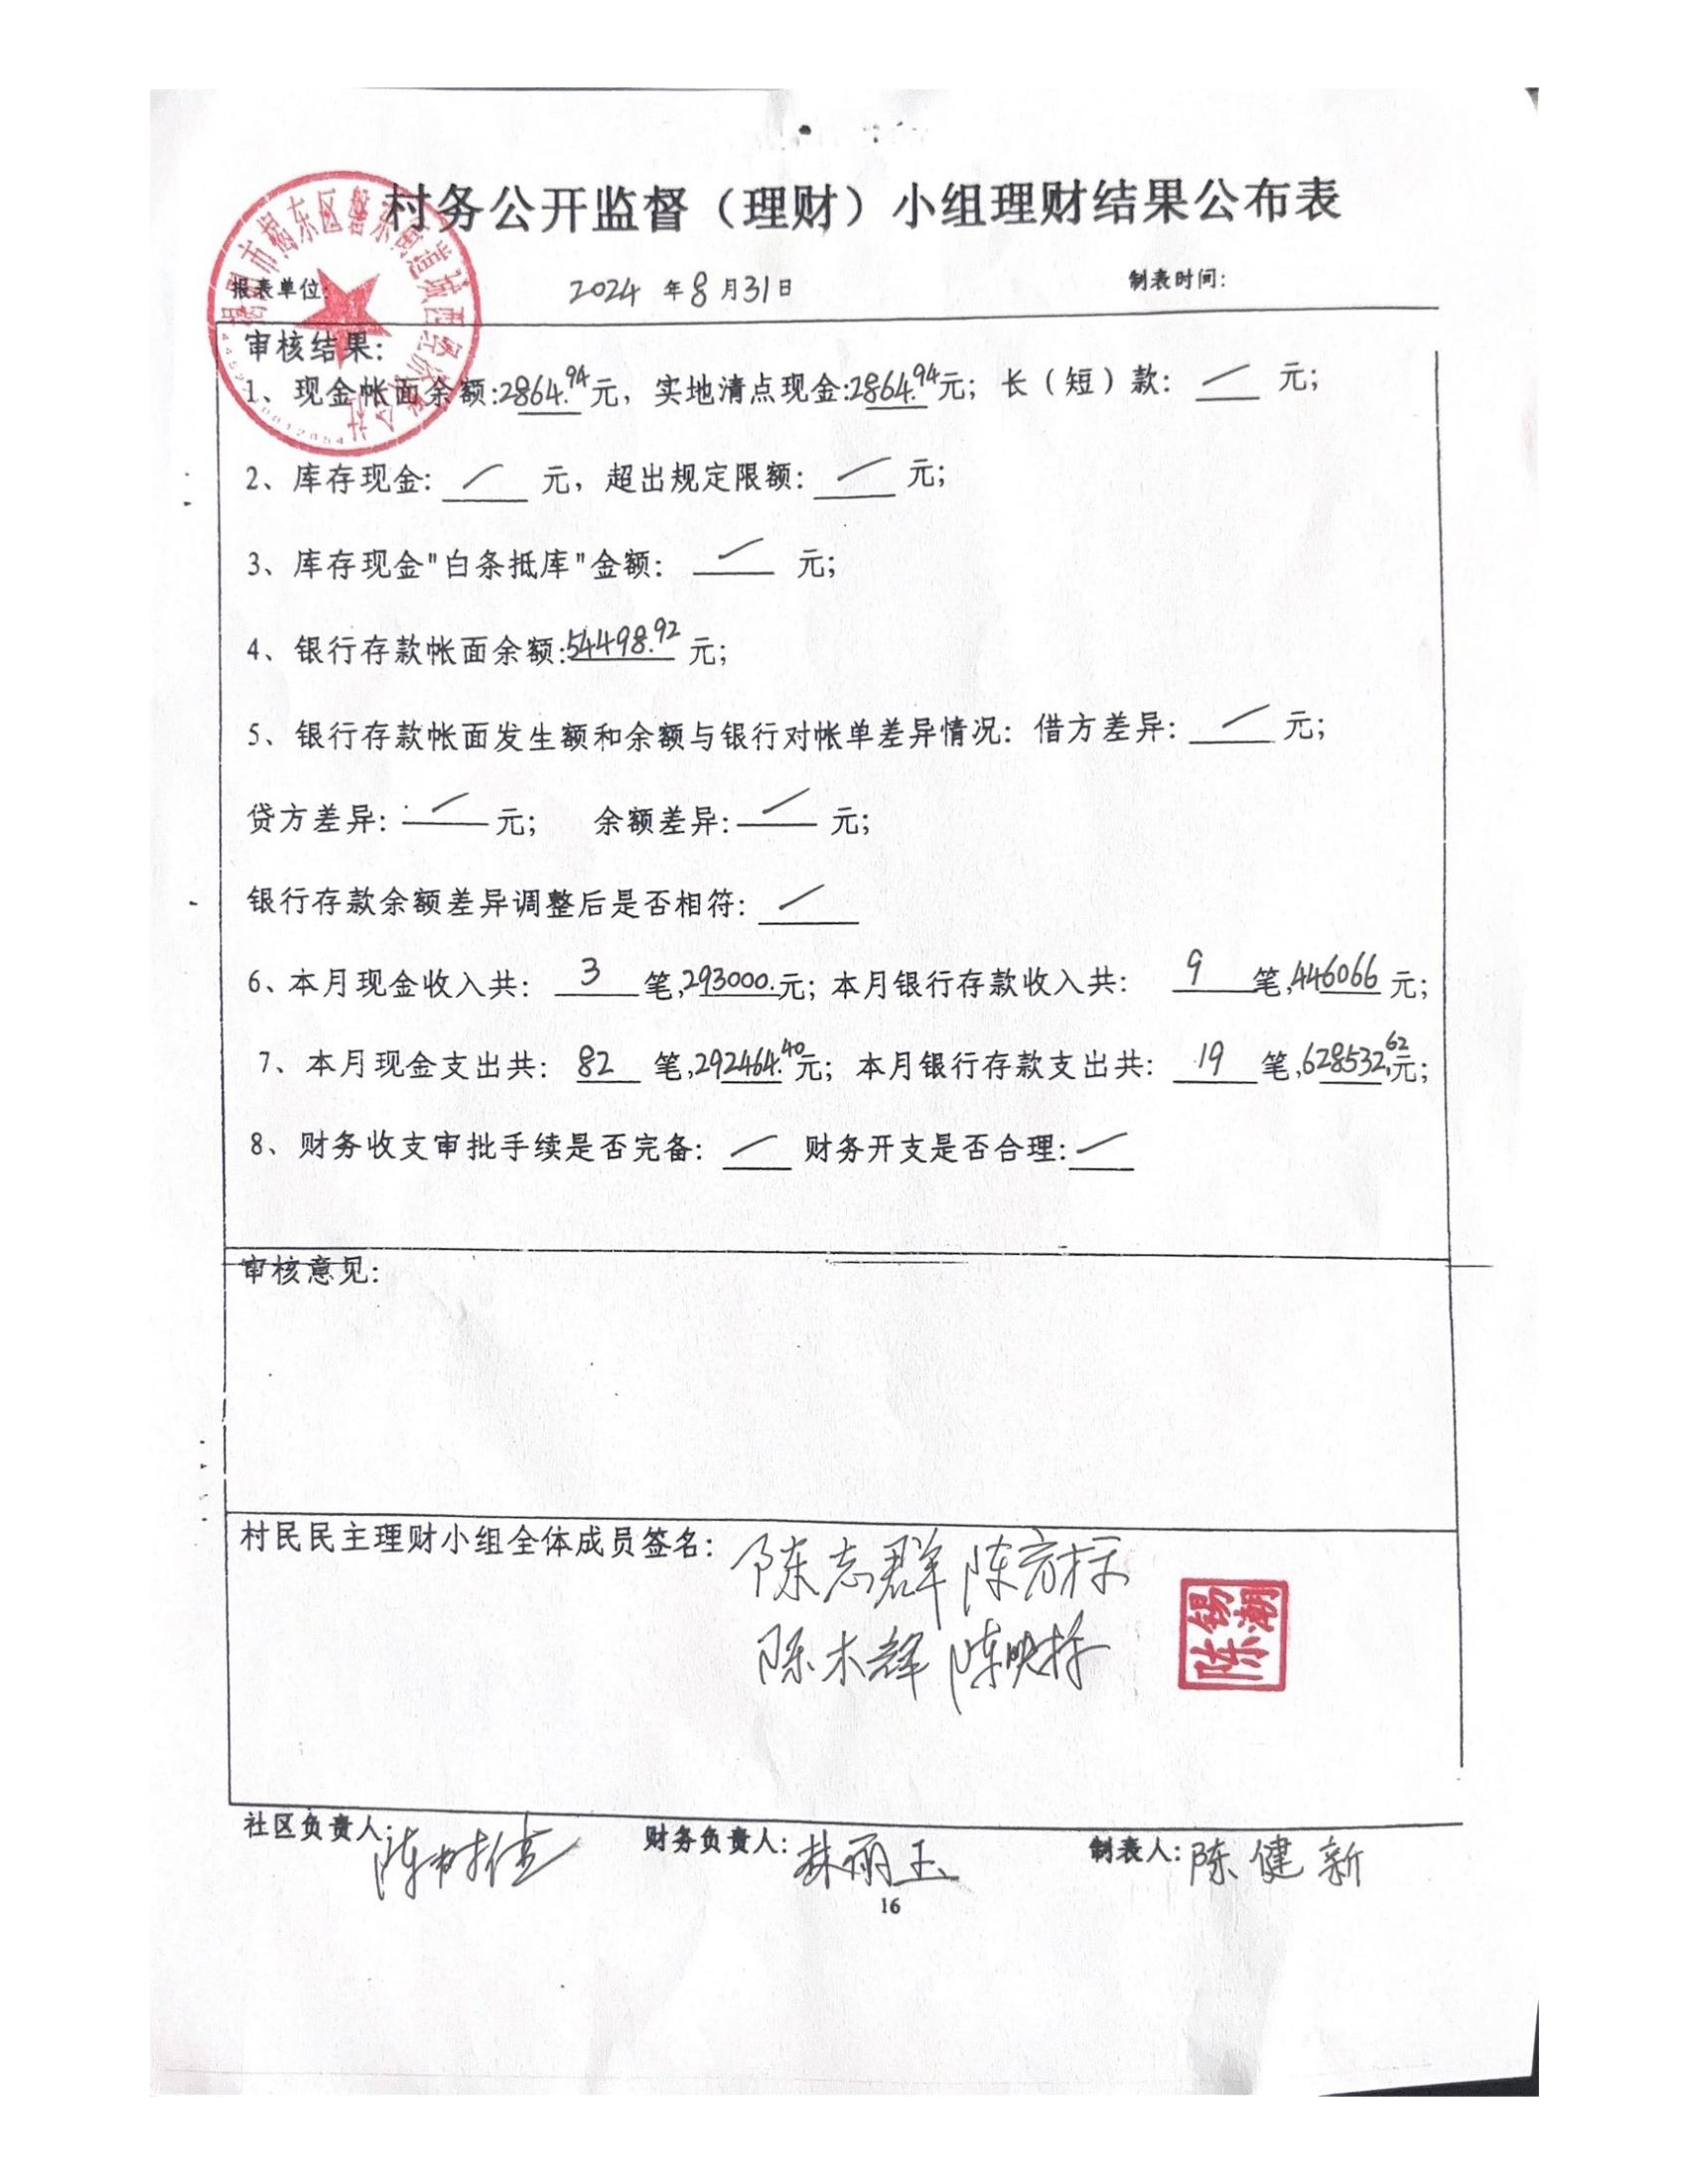 村务公开监督（理财）小组理财结果公布表
报表单位: 2024 年 8 月 31 日 制表时间:
审核结果:
1、现金帐面余额:2864.94元，实地清点现金:2864.94元；长（短）款: / 元；
2、库存现金: / 元，超出规定限额: / 元；
3、库存现金"白条抵库"金额: / 元；
4、银行存款帐面余额:54498.92 元；
5、银行存款帐面发生额和余额与银行对帐单差异情况: 借方差异: / 元；
贷方差异: / 元； 余额差异: / 元；
银行存款余额差异调整后是否相符: /
6、本月现金收入共: 3 笔,293000.元；本月银行存款收入共: 9 笔,446066 元；
7、本月现金支出共: 82 笔,292464.40元；本月银行存款支出共: 19 笔,628532.62元；
8、财务收支审批手续是否完备: / 财务开支是否合理: /
审核意见:
村民民主理财小组全体成员签名: 陈志群
陈木辉
陈锡潮
社区负责人: 财务负责人: 林丽玉 制表人: 陈健新
16